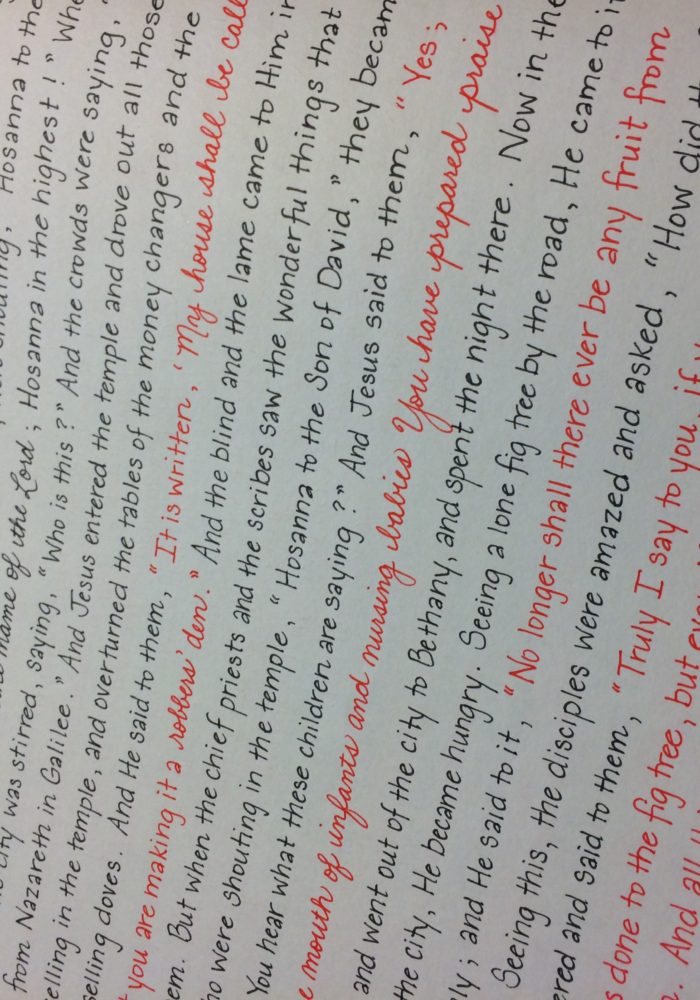 shouting, "Hosanna to the
name of the Lord; Hosanna in the highest!" Whe
city was stirred, saying, "Who is this?" And the crowds were saying, "
from Nazareth in Galilee." And Jesus entered the temple and drove out all those
elling in the temple, and overturned the tables of the money changers and the
selling doves. And He said to them, "It is written, 'My house shall be call
you are making it a robbers' den." And the blind and the lame came to Him in
em. But when the chief priests and the scribes saw the wonderful things that
ho were shouting in the temple, "Hosanna to the Son of David," they becam
You hear what these children are saying?" And Jesus said to them, "Yes;
e mouth of infants and nursing babies You have prepared praise
and went out of the city to Bethany, and spent the night there. Now in the
the city, He became hungry. Seeing a lone fig tree by the road, He came to i
ly; and He said to it, "No longer shall there ever be any fruit from
Seeing this, the disciples were amazed and asked, "How did
ered and said to them, "Truly I say to you, if
s done to the fig tree, but
And all